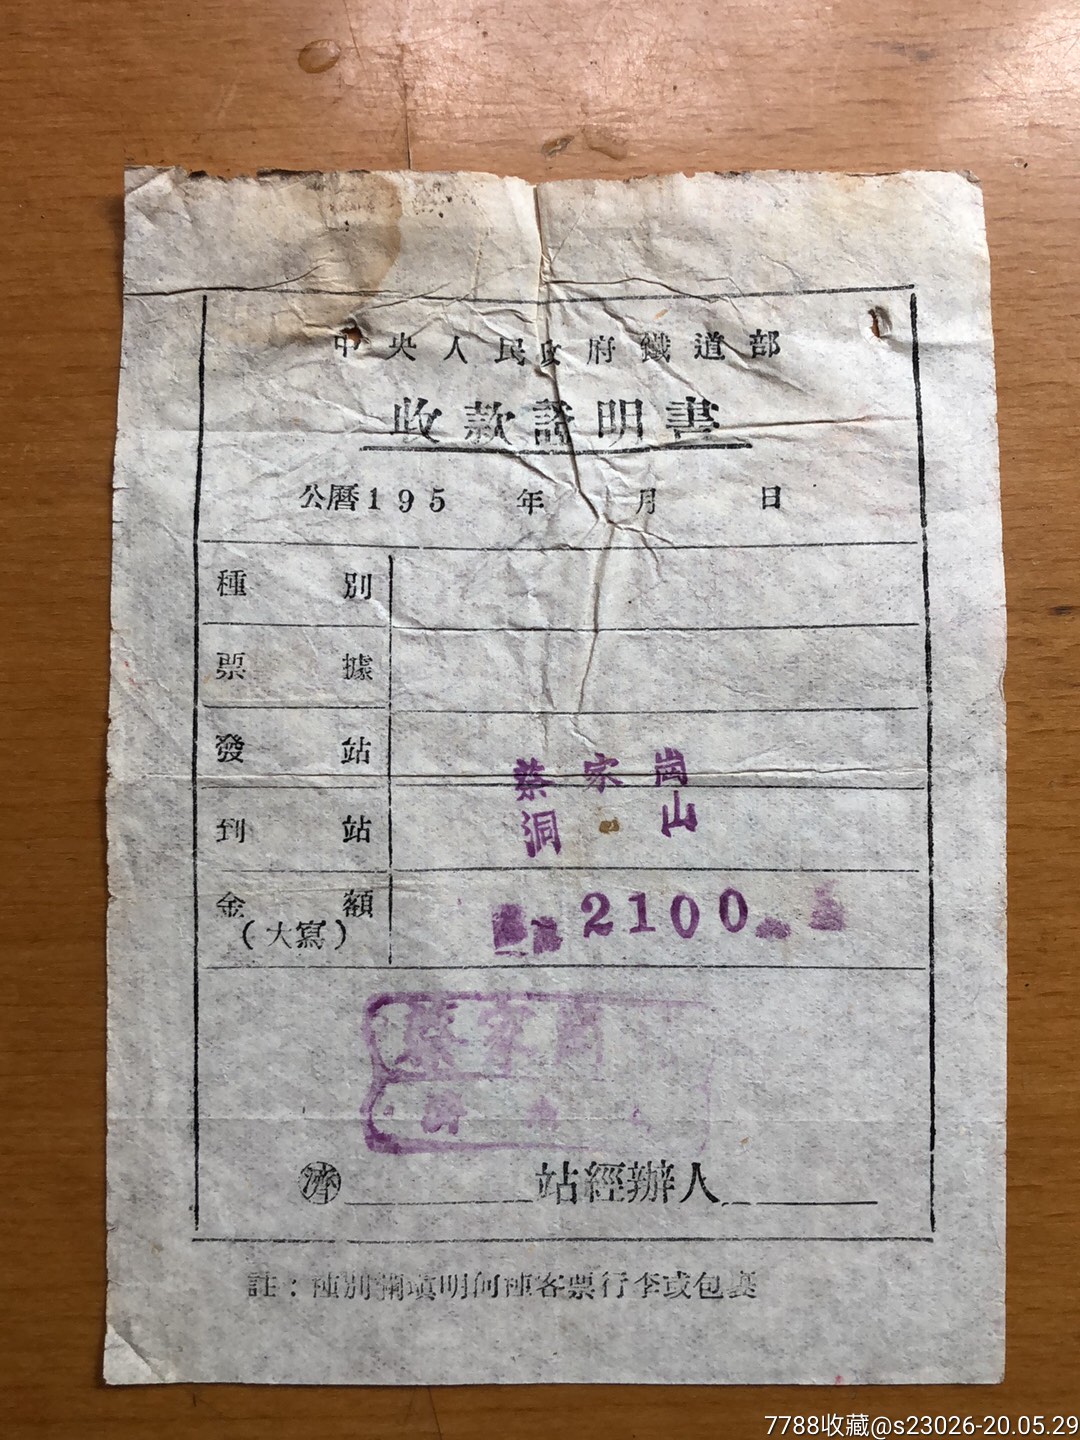 中央人民政府鐵道部
收款證明書
公曆195 年 月 日
種別
票據
發站 蔡家崗
到站 洞山
金額 2100
(大寫)
蔡家崗
濟 站經辦人
註：種別欄填明何種客票行李或包裹
7788收藏@s23026-20.05.29